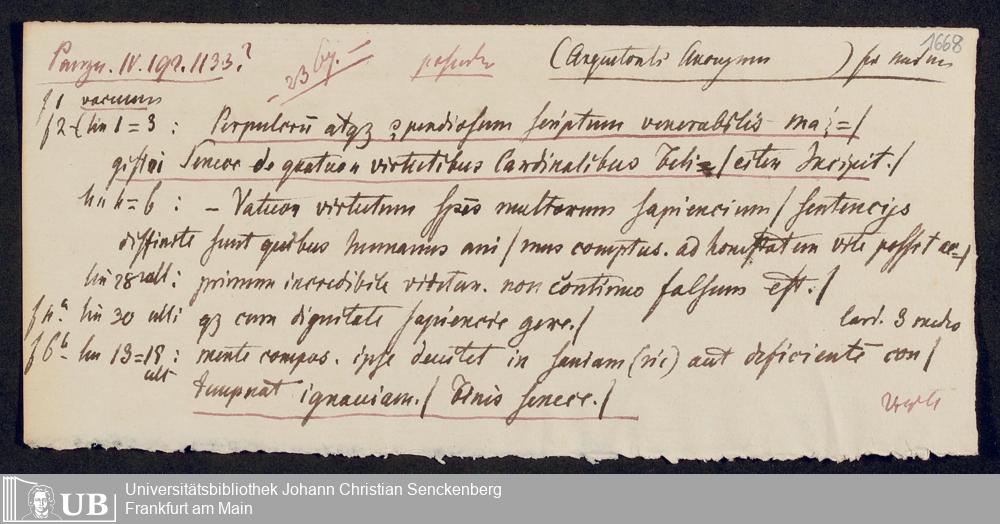 Panzer. IV. 192. 1133.? 2367. (Argentorati Anonymus ) 1668
f 1 vacuum
f 2 lin 1=3 : Perpulcrū atqz ꝯpendiosum scriptum venerabilis ma i=/
gistri Senece de quatuor virtutibus Cardinalibus Feli=/citer Incipit./
lin 4=6 : – Vatuor virtutum spēs multorum sapiencium/ sentencijs
diffinite sunt quibus humanus ani/mus comptus. ad honestatem vite posset ac=/
lin 28 ult: primum incredibile videtur. non continuo falsum est./
f 4ᵃ lin 30 ult: qz cum dignitate sapiencie gere./ Card. 3 medio
f 6ᵇ lin 13=18 ult : mente compos. ipse decitet in saniam (sic) aut deficientē con/
tempnat ignauiam./ Finis senece./